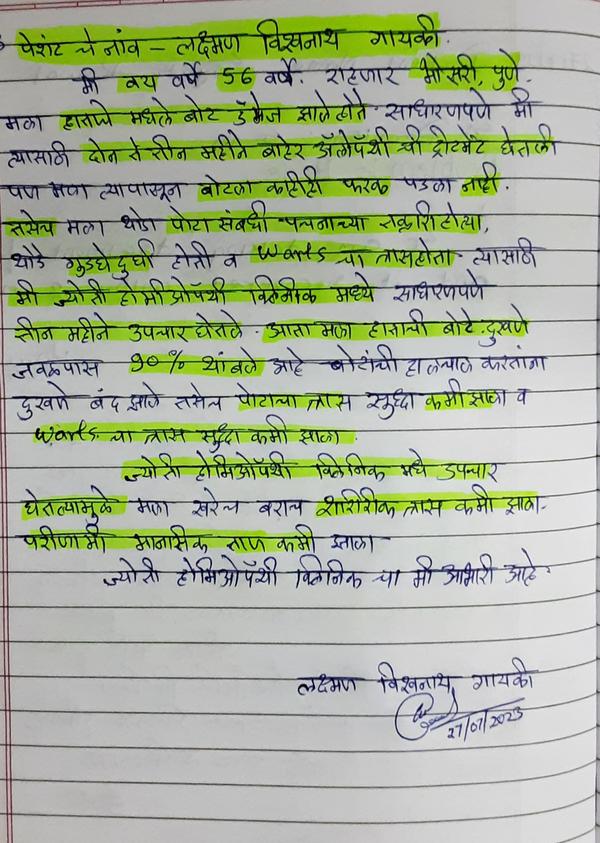 पेशंट चे नांव - लक्ष्मण विश्वनाथ गायकी.
मी वय वर्षे 56 वर्षे. राहणार भोसरी, पुणे.
मला हाताचे मधले बोट डॅमेज झाले होते. साधारणपणे मी
त्यासाठी दोन ते तीन महीने बाहेर ॲलोपॅथी ची ट्रीटमेंट घेतली
पण मला त्यापासून बोटाला काहीही फरक पडला नाही.
तसेच मला थोडा पोटा संबंधी पचनाच्या तक्रारी होत्या,
थोडे गुडघे दुखी होती व Warts चा त्रास होता. त्यासाठी
मी ज्योती होमिओपॅथी क्लिनिक मध्ये साधारणपणे
तीन महीने उपचार घेतले. आता मला हाताची बोटे दुखणे
जवळपास 90% थांबले आहे. बोटांची हालचाल करतांना
दुखणे बंद झाले तसेच पोटाचा त्रास सुद्धा कमी झाला व
Warts चा त्रास सुद्धा कमी झाला.
ज्योती होमिओपॅथी क्लिनिक मधे उपचार
घेतल्यामुळे मला खरेच बराच शारिरीक त्रास कमी झाला.
परीणामी मानसिक ताण कमी झाला.
ज्योती होमिओपॅथी क्लिनिक चा मी आभारी आहे.
लक्ष्मण विश्वनाथ गायकी
27/07/2023